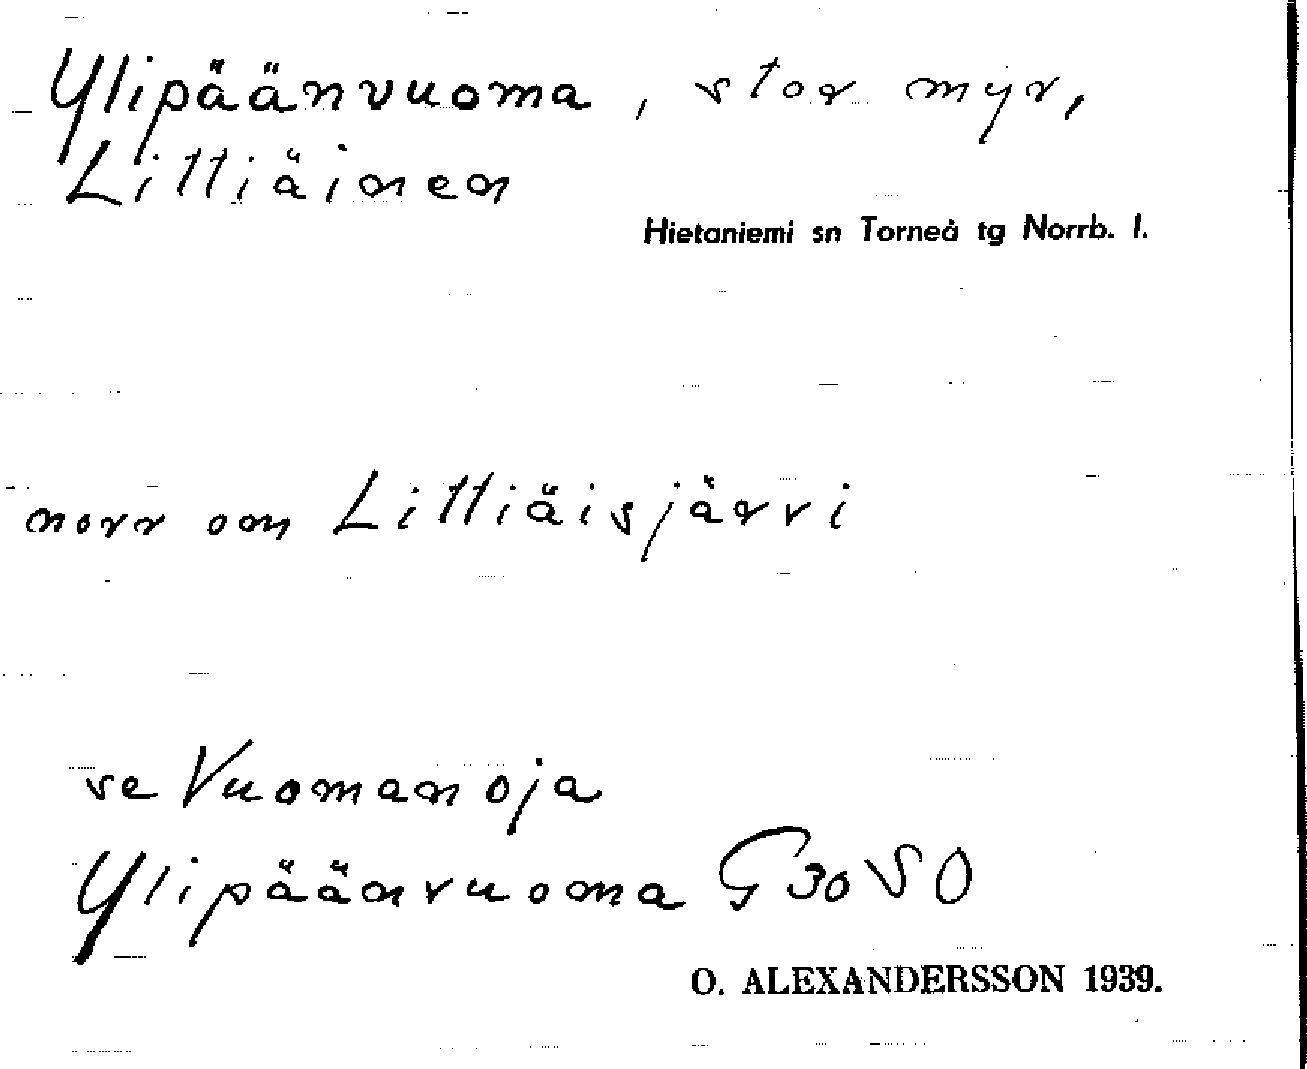 Ylipäänvuoma, stor myr,
Littiäinen
Hietaniemi sn Torneå tg Norrb. l.
norr om Littiäisjärvi
se Vuomanoja
Ylipäänvuoma G 30 SO
O. ALEXANDERSSON 1939.